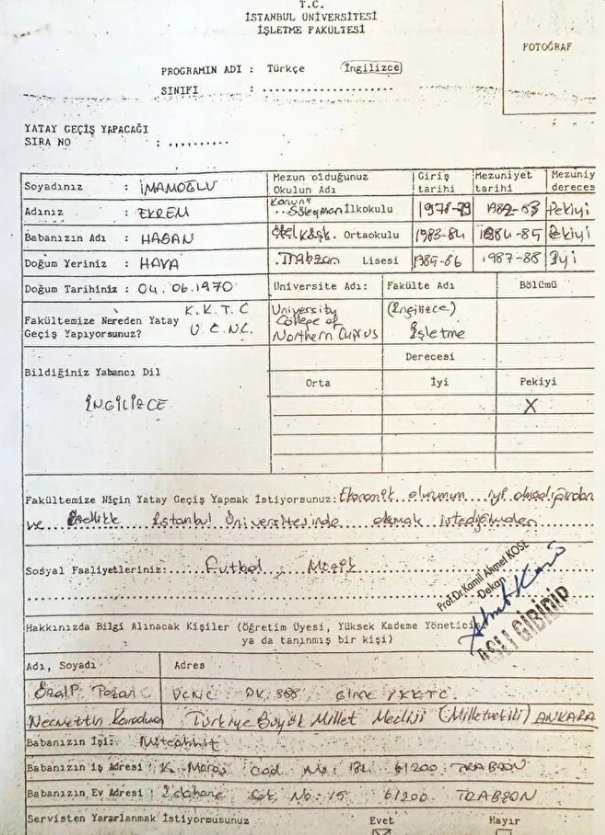 T.C.
İSTANBUL ÜNİVERSİTESİ
İŞLETME FAKÜLTESİ
FOTOĞRAF
PROGRAMIN ADI : Türkçe İngilizce
SINIFI : ....................
YATAY GEÇİŞ YAPACAĞI
SIRA NO : .........
Soyadınız : İMAMOĞLU
Mezun olduğunuz Okulun Adı
Giriş tarihi
Mezuniyet tarihi
Mezuniy dereces
Adınız : EKREM
Kanuni Süleyman İlkokulu 1978-79 1982-83 Pekiyi
Babanızın Adı : HASAN
Özel Ortaokulu 1983-84 1984-85 Pekiyi
Doğum Yeriniz : HAVA
Trabzon Lisesi 1985-86 1987-88 İyi
Doğum Tarihiniz : 04.06.1970
Üniversite Adı: Fakülte Adı Bölümü
Fakültemize Nereden Yatay Geçiş Yapıyorsunuz? K.K.T.C U.C.N.C.
University College of Northern Cyprus
(İngilizce) İşletme
Bildiğiniz Yabancı Dil
Derecesi
Orta İyi Pekiyi
İNGİLİZCE X
Fakültemize Niçin Yatay Geçiş Yapmak İstiyorsunuz: Ekonomik durumun iyi olmadığından
ve Özellikle İstanbul Üniversitesinde okumak istediğimden
Sosyal Faaliyetleriniz: Futbol Müzik
Prof.Dr.Kamil Ahmet KÖSE
Dekan
ASLI GİBİDİR
Hakkınızda Bilgi Alınacak Kişiler (Öğretim Üyesi, Yüksek Kademe Yöneticis
ya da tanınmış bir kişi)
Adı, Soyadı Adres
UCNC PK. 388 Girne / KKTC.
Necmettin Karaduman Türkiye Büyük Millet Meclisi (Milletvekili) ANKARA
Babanızın İşi: Müteahhit
Babanızın iş Adresi : K. Maraş Cad. No: 61200 TRABZON
Babanızın Ev Adresi : No: 15 61200 TRABZON
Servisten Yararlanmak İstiyormusunuz Evet Hayır